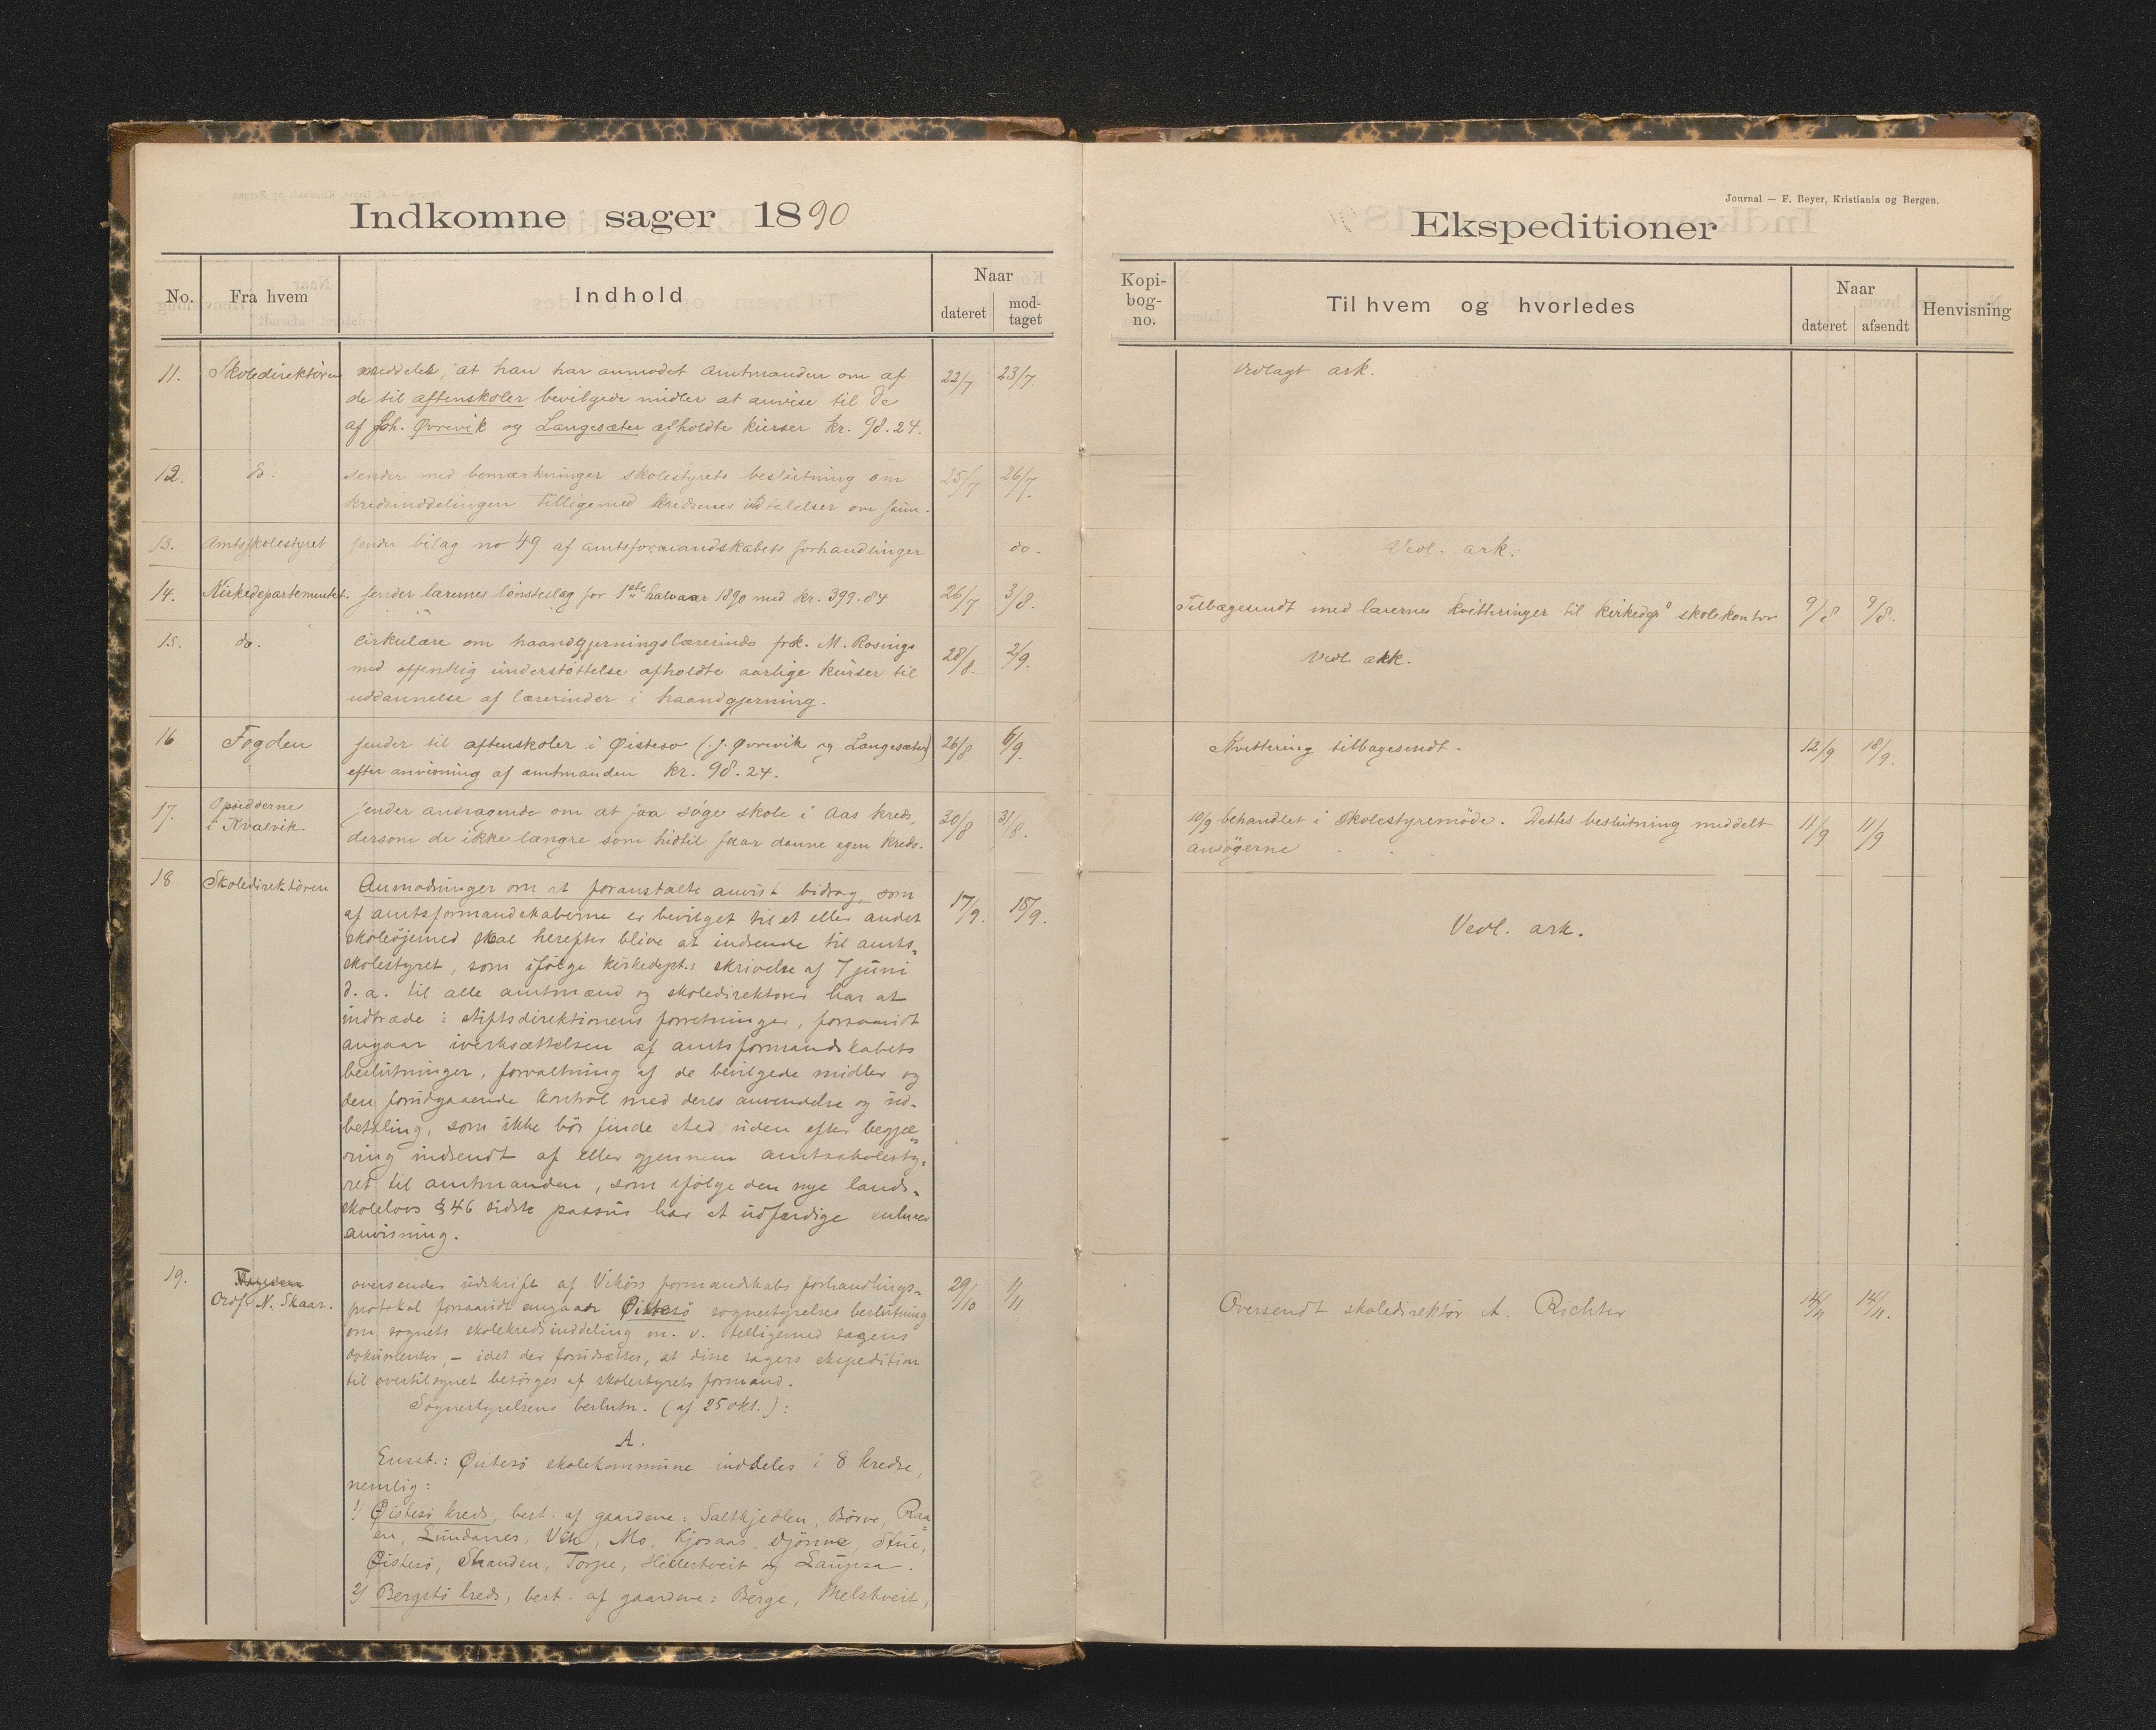 Indkomne sager 1890
No.
Fra hvem
Indhold
Naar
dateret
mod-
taget
11. Skoledirektören meddeler, at han har anmodet amtmanden om af 22/7 23/7.
de til aftenskoler bevilgede midler at anvise til de
af Joh. Øvrevik og Langesæter afholdte kurser kr. 98.24.
12. do. sender med bemærkninger skolestyrets beslutning om 25/7 26/7.
kredsinddelingen tilligemed kredsenes udtalelser om samme.
13. Amtsskolestyret sender bilag no 49 af amtsformandskabets forhandlinger do.
14. Kirkedepartementet. sender lærernes lönstillæg for 1ste halvaar 1890 med kr. 399.84 26/7 3/8.
15. do. Cirkulære om haandgjerningslærerinde frk. M. Rosings
med offentlig understöttelse afholdte aarlige kurser til 28/8. 2/9.
uddannelse af lærerinder i haandgjerning.
16 Fogden sender til aftenskoler i Øistesø (J. Øvrevik og Langesæter) 26/8 6/9.
efter anvisning af amtmanden kr. 98.24.
17. Opsidderne
i Kvalvik. sender andragende om at faa söge skole i Aas kreds, 30/8 31/8.
dersom de ikke længre som hidtil faar danne egen kreds.
18 Skoledirektören Anmodninger om at foranstalte anvist bidrag, som
af amtsformandskaberne er bevilget til et eller andet 17/9. 18/9.
skoleöjemed skal herefter blive at indsende til amts-
skolestyret, som ifölge kirkedept.s skrivelse af 7 juni
d. a. til alle amtmænd og skoledirektører har at
indtræde i stiftsdirektionens forretninger, forsaavidt
angaar iverksættelsen af amtsformandskabets
beslutninger, forvaltning af de bevilgede midler og
den forudgaaende kontrol med deres anvendelse og ud-
betaling, som ikke bör finde sted uden efter begjæ-
ring indsendt af eller gjennem amtsskolesty-
ret til amtmanden, som ifölge den nye lands-
skolelovs § 46 sidste passus har at udfærdige enhver
anvisning.
19. Ordf. N. Skaar. oversender udskrift af Vikörs formandskabs forhandlings- 29/10 1/11
protokol forsaavidt angaar Øistesö sognestyrelses beslutning
om sognets skolekredsinddeling m. v. tilligemed sagens
dokumenter, – idet der forudsættes, at disse sagers ekspedition
til overtilsynet besörges af skolestyrets formand.
Sognestyrelsens beslutn. (af 25 okt.):
A.
Enst.: Øistesö skolekommune inddeles i 8 kredse,
nemlig:
1) Øistesö kreds, best. af gaardene: Saltkjedlen, Börve, Raa-
en, Lundanes, Vik, Mo, Kjosaas, Djönne, Stue,
Øistesö, Stranden, Torpe, Hellestveit og Laupsa.
2) Bergstö kreds, best. af gaardene: Berge, Melstveit,
Journal — F. Beyer, Kristiania og Bergen.
Ekspeditioner
Kopi-
bog-
no.
Til hvem og hvorledes
Naar
dateret
afsendt
Henvisning
Vedlagt ark.
Vedl. ark.
Tilbagesendt med lærernes kvitteringer til kirkedp.s skolekontor 9/8 9/8.
Vedl. ark.
Kvittering tilbagesendt. 12/9 18/9.
10/9 behandlet i skolestyremöde. Dettes beslutning meddelt 11/9 11/9
ansögerne
Vedl. ark.
Oversendt skoledirektör A. Richter 14/11 14/11.